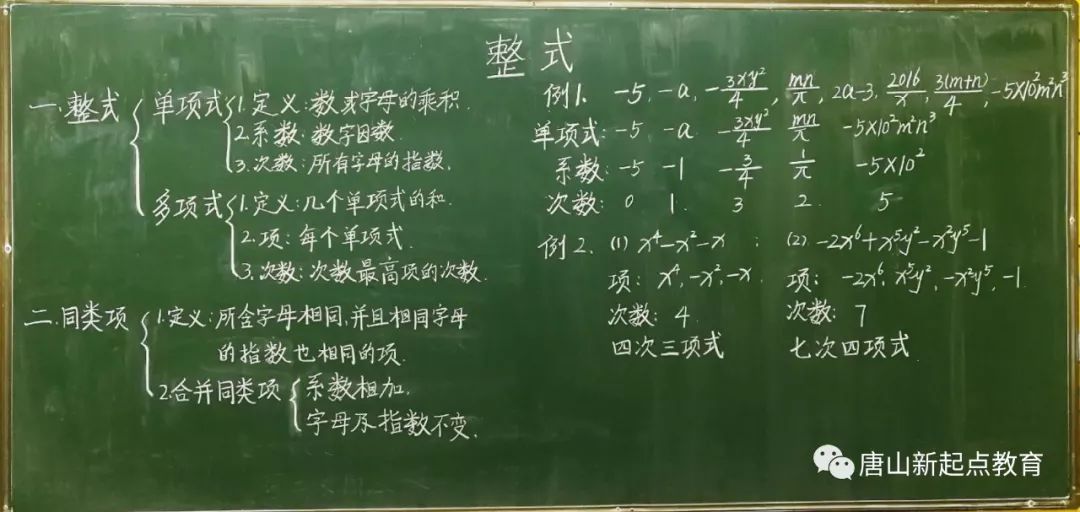 整式
一.整式
单项式
1.定义:数或字母的乘积.
2.系数:数字因数.
3.次数:所有字母的指数.
多项式
1.定义:几个单项式的和.
2.项:每个单项式.
3.次数:次数最高项的次数.
二.同类项
1.定义:所含字母相同,并且相同字母
的指数也相同的项.
2.合并同类项
系数相加.
字母及指数不变.
例1. -5, -a, -3xy²/4, mn/π, 2a-3, 2016/x, 3(m+n)/4, -5×10²m²n³
单项式: -5 -a -3xy²/4 mn/π -5×10²m²n³
系数: -5 -1 -3/4 1/π -5×10²
次数: 0 1 3 2 5
例2. (1) x⁴-x²-x ; (2) -2x⁶+x⁵y²-x²y⁵-1
项: x⁴, -x², -x. 项: -2x⁶, x⁵y², -x²y⁵, -1.
次数: 4. 次数: 7
四次三项式 七次四项式.
唐山新起点教育